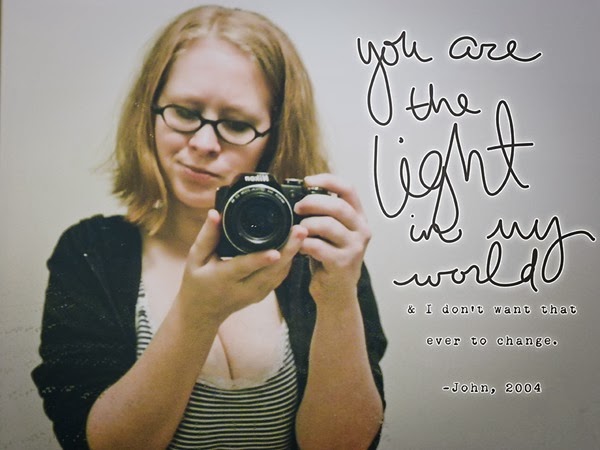 you are
the
light
in my
world
& I don't want that
ever to change.
-John, 2004
Nikon